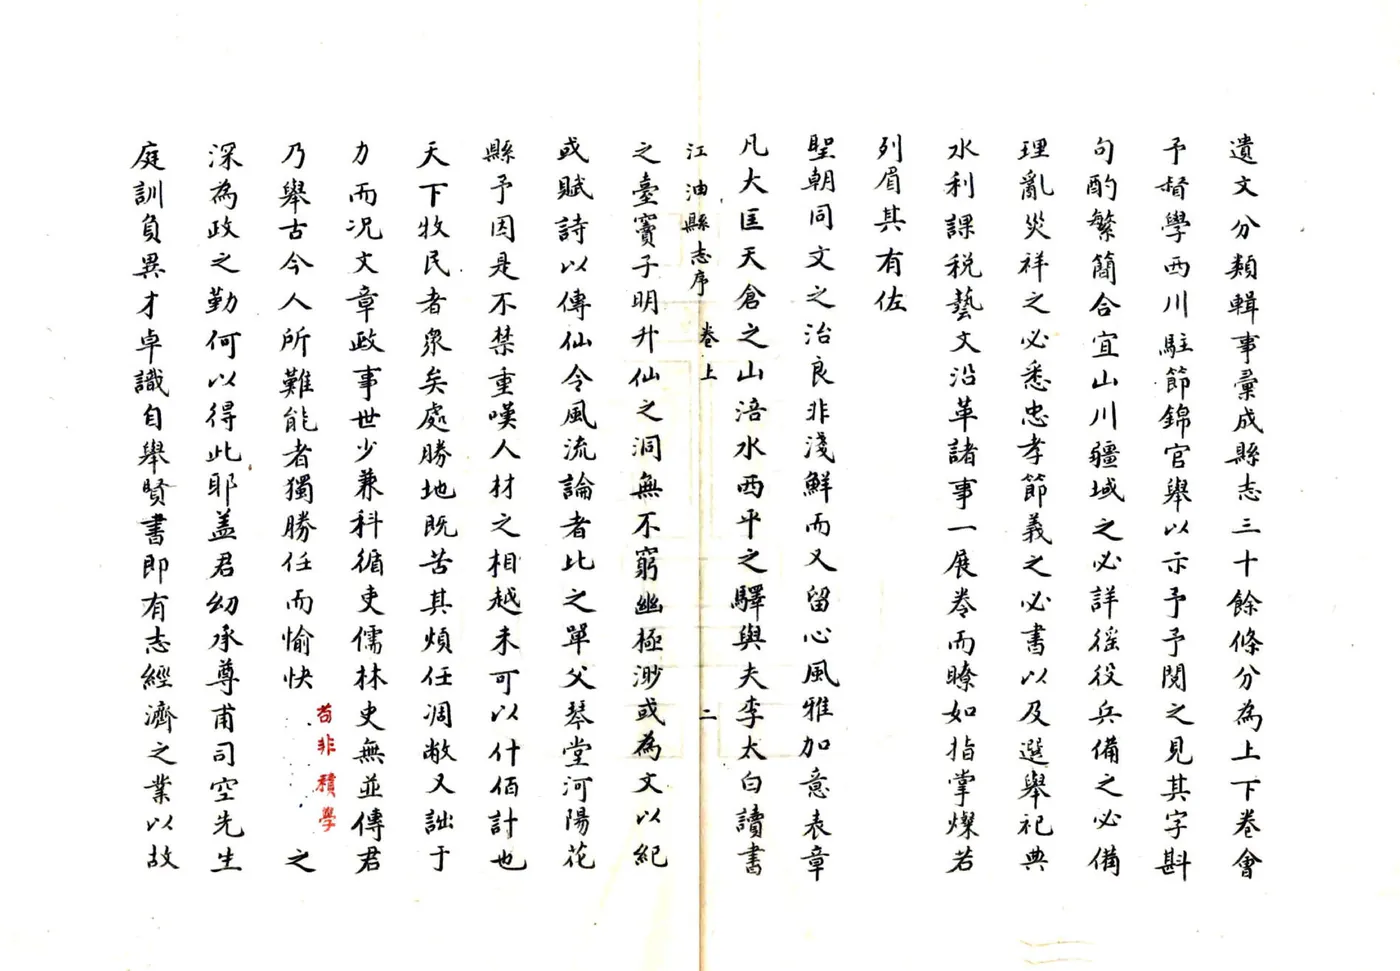 遺文分類輯事彙成縣志三十餘條分為上下卷會
予督學西川駐節錦官舉以示予予閱之見其字斟
句酌繁簡合宜山川疆域之必詳徭役兵備之必備
理亂災祥之必悉忠孝節義之必書以及選舉祀典
水利課稅藝文沿革諸事一展卷而瞭如指掌燦若
列眉其有佐
聖朝同文之治良非淺鮮而又留心風雅加意表章
凡大匡天倉之山涪水西平之驛與夫李太白讀書
江油縣志序 卷上 二
之臺竇子明升仙之洞無不窮幽極渺或為文以紀
或賦詩以傳仙令風流論者比之單父琴堂河陽花
縣予因是不禁重嘆人材之相越未可以什佰計也
天下牧民者衆矣處勝地既苦其煩任凋敝又詘于
力而况文章政事世少兼科循吏儒林史無並傳君
乃舉古今人所難能者獨勝任而愉快苟非積學之
深為政之勤何以得此耶盖君幼承尊甫司空先生
庭訓負異才卓識自舉賢書即有志經濟之業以故